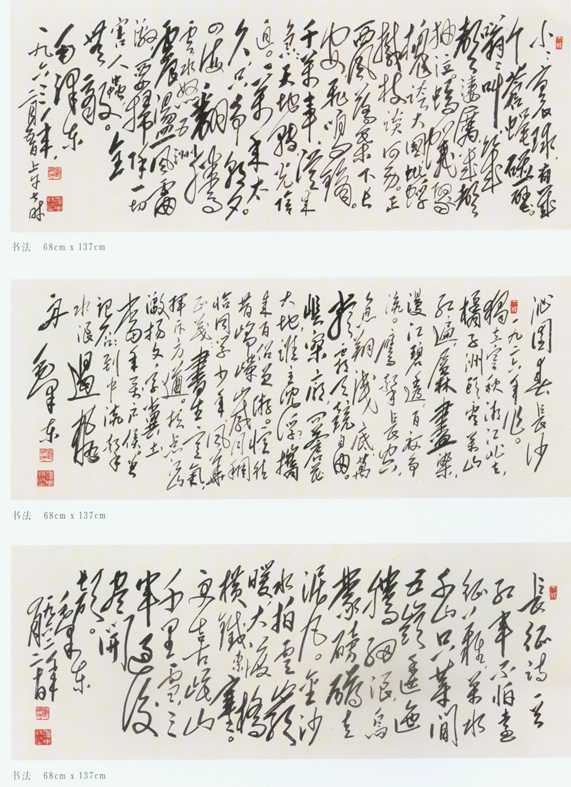 小小寰球有几
个苍蝇碰壁。
嗡嗡叫几声
凄厉几声
抽泣蚂蚁缘
槐谈大国蚍蜉
撼树谈何易。正
西风落叶下长
安飞鸣镝。
事从来
急天地转光阴
迫。一万年太
久只争朝夕。
四海翻腾
云水怒五洲
震荡风雷
激要扫除一切
害人虫全
无敌。
毛泽东
一九六三
书法 68cm x 137cm
沁园春 长沙
一九二六年作。
独立寒秋湘江北去
橘子洲头看万山
红遍层林尽染
漫江碧透百舸争
流。鹰击长空
鱼翔浅底万
类霜天竞自由。
怅寥廓问苍茫
大地谁主沉浮。携
来百侣曾游。忆往
昔峥嵘岁月稠
恰同学少年风华
正茂书生意气
挥斥方遒。指点江
激扬文字粪土
当年万户侯。曾
记否到中流击
水浪遏飞
舟 毛泽东
书法 68cm x 137cm
长征诗一首
红军不怕远
征难万水
千山只等闲
五岭逶迤
腾细浪乌
蒙磅礴走
泥丸。金沙
水拍云崖
暖大渡桥
横铁索寒。
更喜岷山
千里雪三
军过后
尽开
颜。
毛泽东
书法 68cm x 137cm